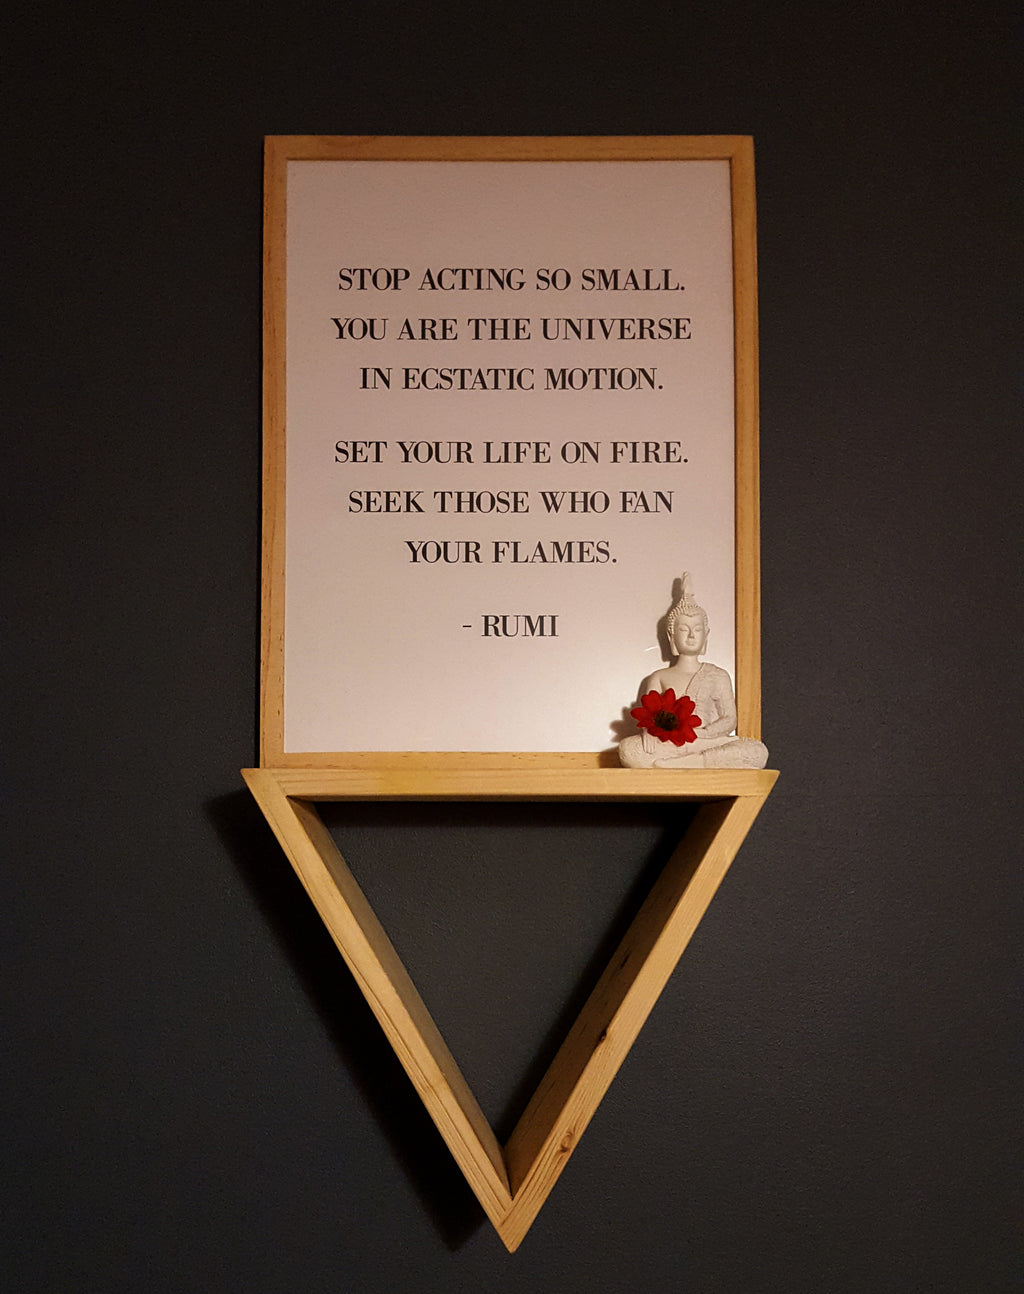 STOP ACTING SO SMALL.
YOU ARE THE UNIVERSE
IN ECSTATIC MOTION.
SET YOUR LIFE ON FIRE.
SEEK THOSE WHO FAN
YOUR FLAMES.
- RUMI